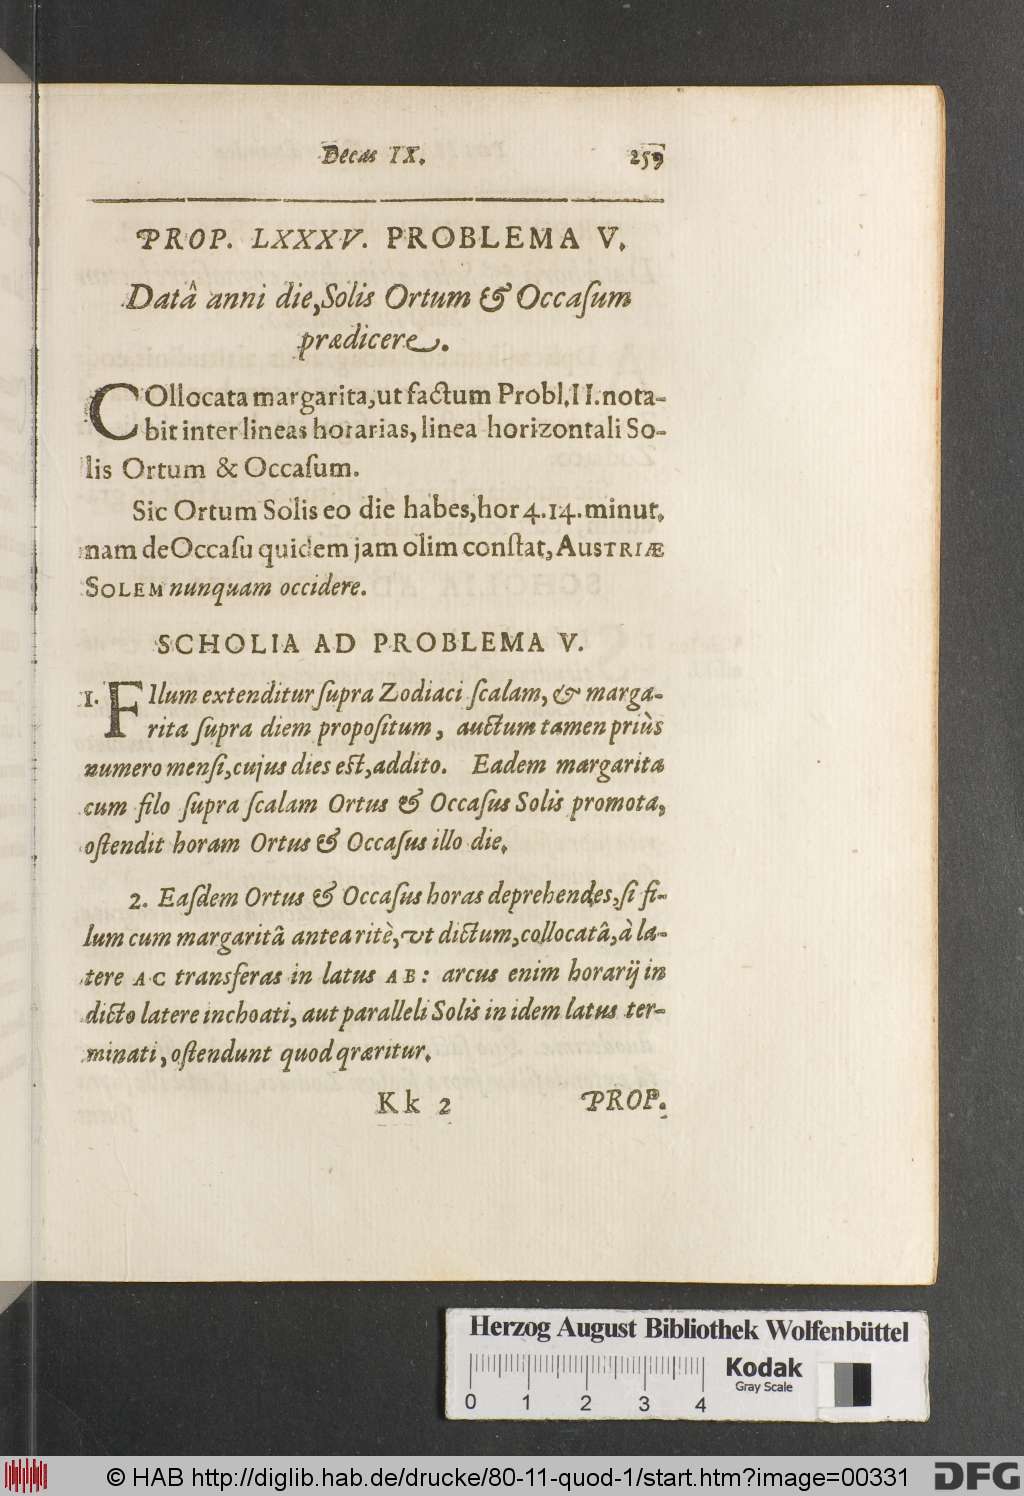 Decas IX. 259
PROP. LXXXV. PROBLEMA V.
Datâ anni die, Solis Ortum & Occaſum
prædicere.
COllocata margarita, ut factum Probl. II. nota-
bit inter lineas horarias, linea horizontali So-
lis Ortum & Occaſum.
Sic Ortum Solis eo die habes, hor 4. 14. minut.
nam de Occaſu quidem jam olim conſtat, AUSTRIÆ
SOLEM nunquam occidere.
SCHOLIA AD PROBLEMA V.
1. FIlum extenditur ſupra Zodiaci ſcalam, & marga-
rita ſupra diem propoſitum, auctum tamen priùs
numero menſi, cujus dies eſt, addito. Eadem margarita
cum filo ſupra ſcalam Ortus & Occaſus Solis promota,
oſtendit horam Ortus & Occaſus illo die.
2. Eaſdem Ortus & Occaſus horas deprehendes, ſi fi-
lum cum margaritâ antea ritè, vt dictum, collocatâ, à la-
tere AC transferas in latus AB: arcus enim horarij in
dicto latere inchoati, aut paralleli Solis in idem latus ter-
minati, oſtendunt quod qræritur.
Kk 2 PROP.
Herzog August Bibliothek Wolfenbüttel
0 1 2 3 4
Kodak
Gray Scale
© HAB http://diglib.hab.de/drucke/80-11-quod-1/start.htm?image=00331
DFG